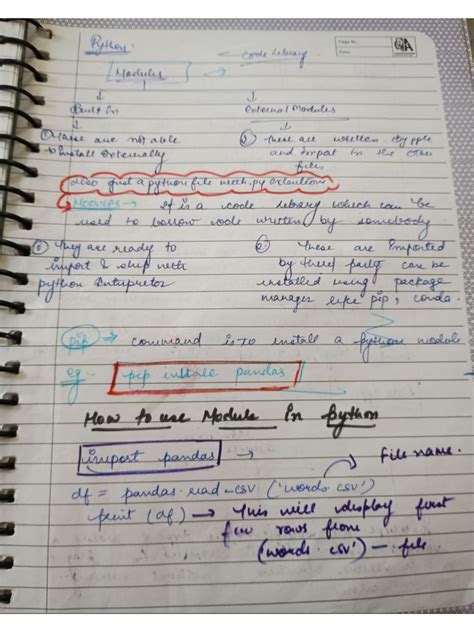 Python:
<- code library
Modules ->
Built In
External Modules
① These are not able
to Install Externally
② These are written by ppl
and import in the other
files
also just a python file with .py extention
Modules -> It is a code library which can be
used to borrow code written by somebody
① They are ready to
import & ship with
python Interpretor
② These are Imported
by third party can be
installed using package
manager like pip, conda.
pip -> command is to install a python module
eg - pip install pandas
How to use Module In python
import pandas
File name.
df = pandas.read-csv ('words.csv')
print (df) -> This will display first
few rows from
('words.csv') - file